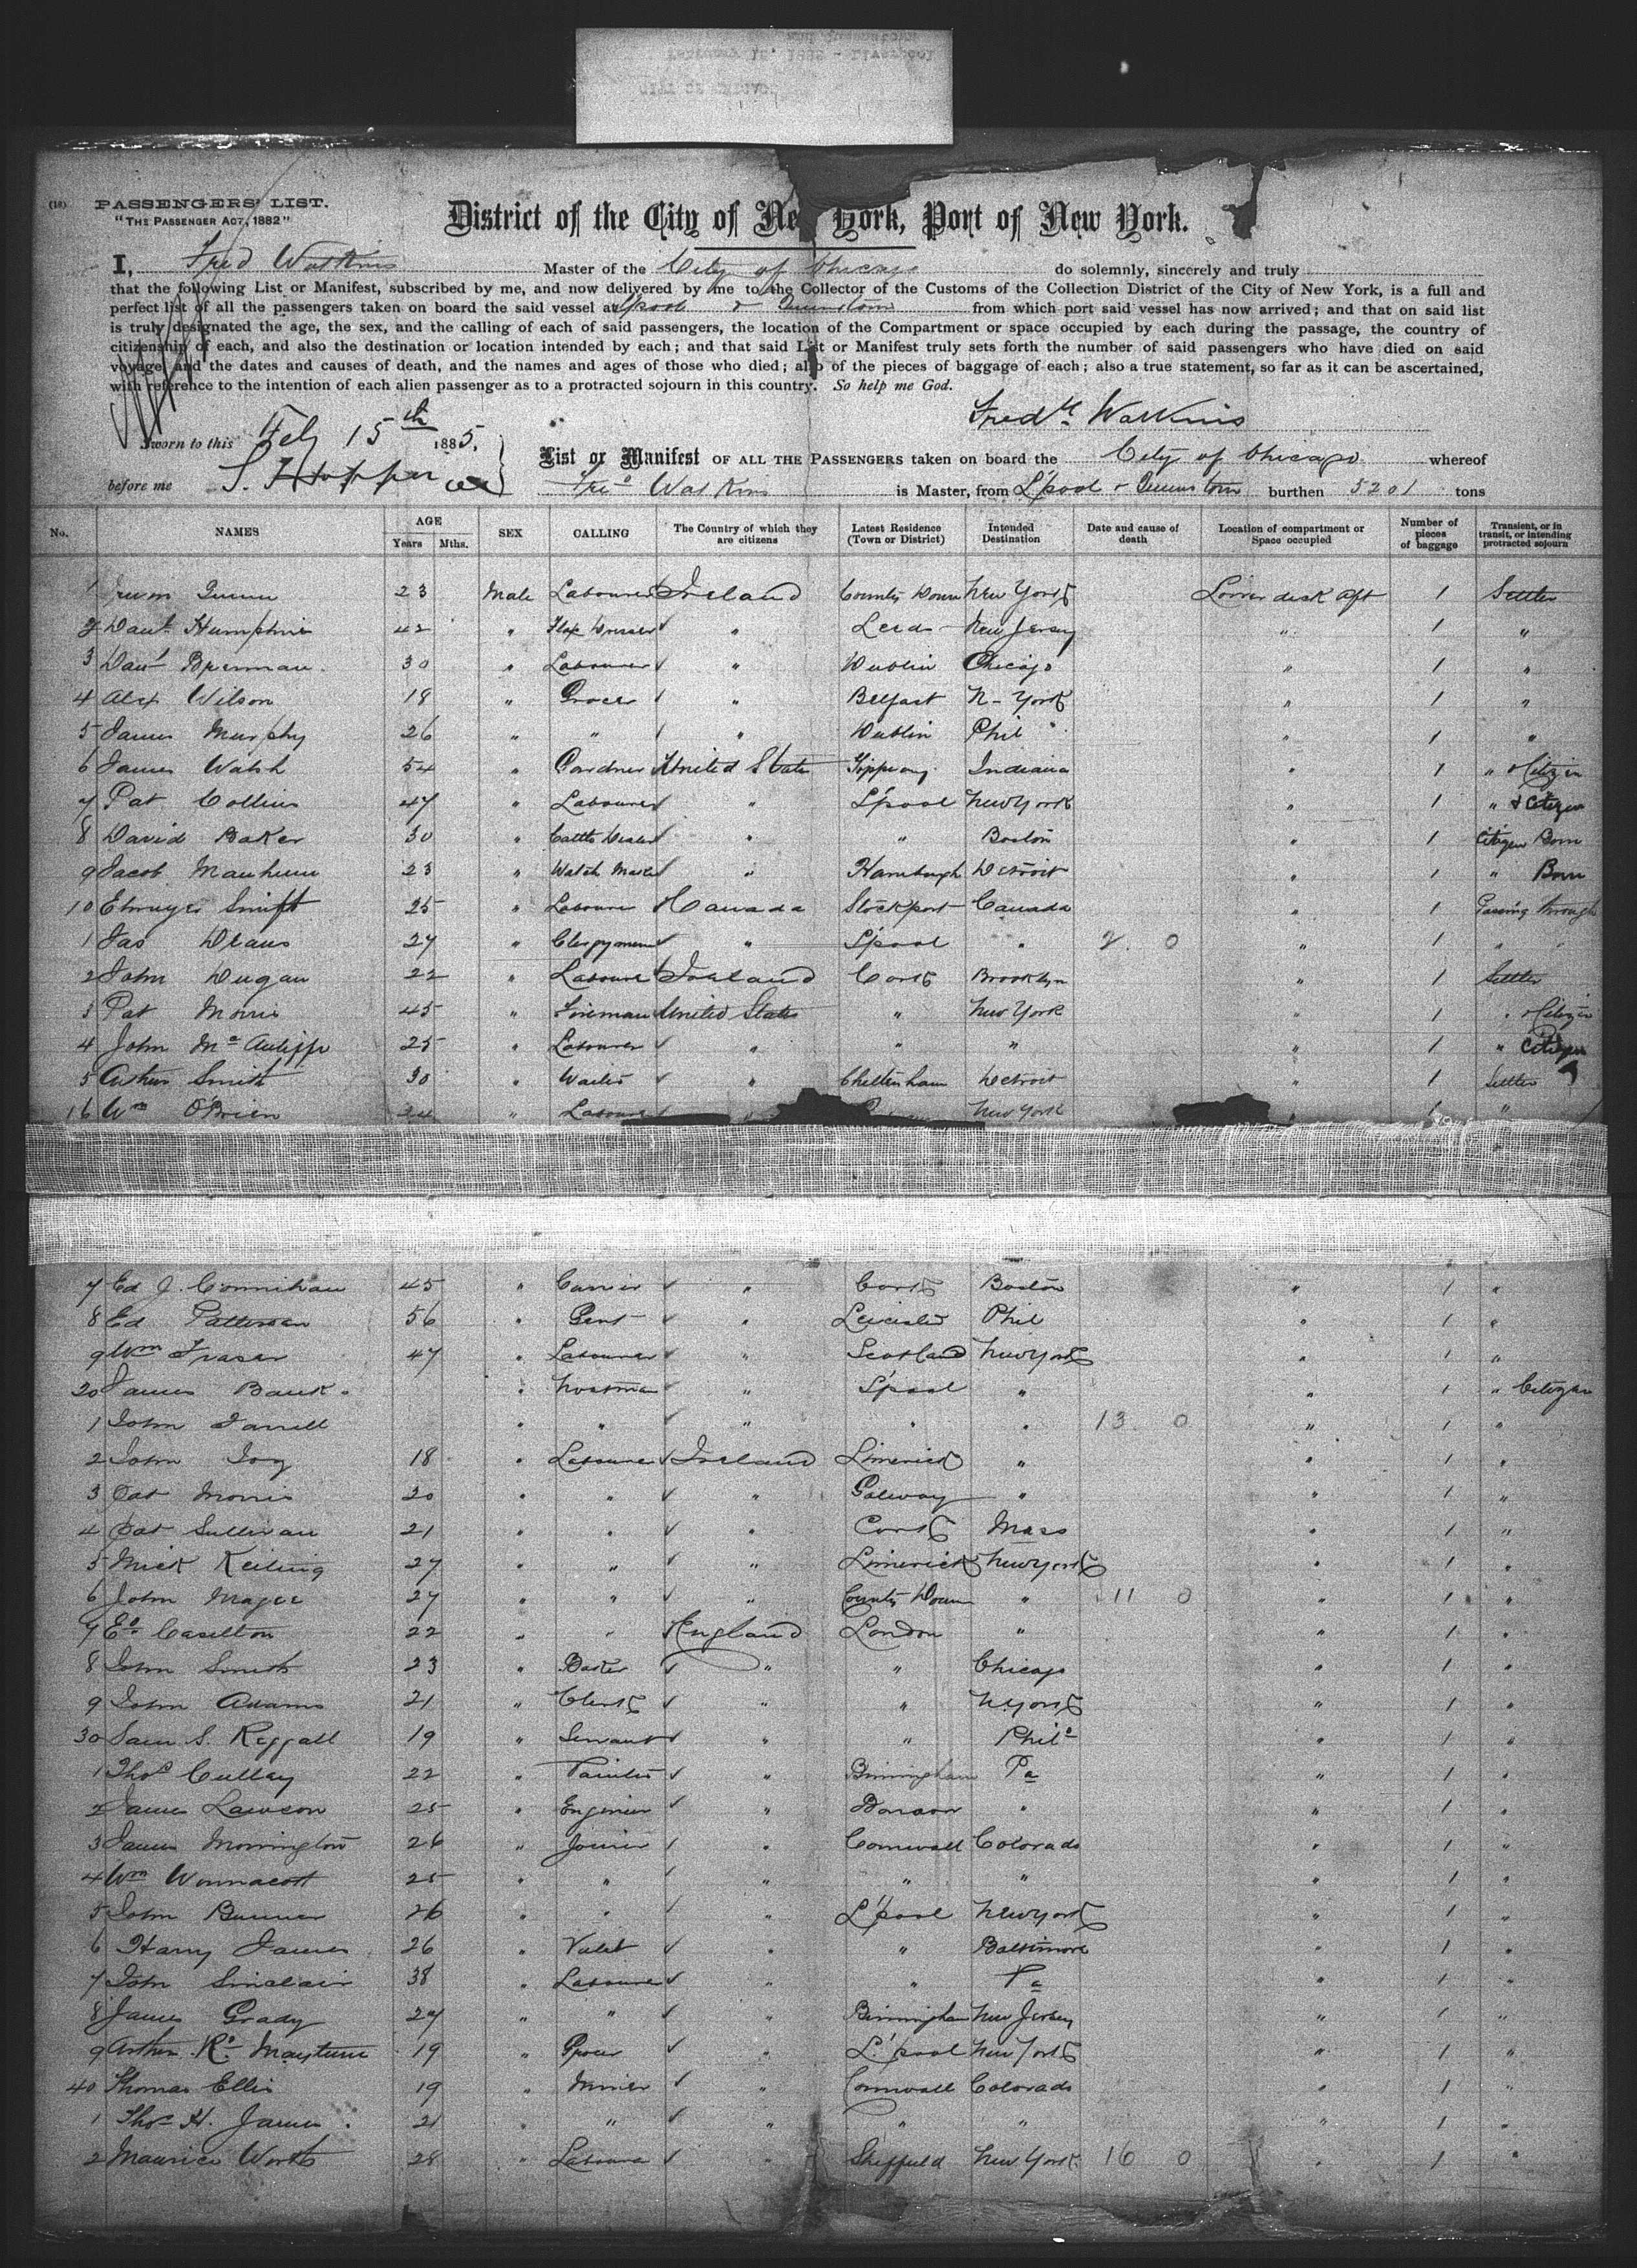 (18) PASSENGERS' LIST.
"THE PASSENGER ACT, 1882"
District of the City of New York, Port of New York.
I, Fred Watkins Master of the City of Chicago do solemnly, sincerely and truly
that the following List or Manifest, subscribed by me, and now delivered by me to the Collector of the Customs of the Collection District of the City of New York, is a full and
perfect list of all the passengers taken on board the said vessel at L'pool & Queenstown from which port said vessel has now arrived; and that on said list
is truly designated the age, the sex, and the calling of each of said passengers, the location of the Compartment or space occupied by each during the passage, the country of
citizenship of each, and also the destination or location intended by each; and that said List or Manifest truly sets forth the number of said passengers who have died on said
voyage, and the dates and causes of death, and the names and ages of those who died; also of the pieces of baggage of each; also a true statement, so far as it can be ascertained,
with reference to the intention of each alien passenger as to a protracted sojourn in this country. So help me God.
Fredk Watkins
Sworn to this Feby 15th 1885,
before me
List or Manifest OF ALL THE PASSENGERS taken on board the City of Chicago whereof
Fred Watkins is Master, from L'pool & Queenstown burthen 5201 tons
No. NAMES AGE Years Mths. SEX CALLING The Country of which they are citizens Latest Residence (Town or District) Intended Destination Date and cause of death Location of compartment or Space occupied Number of pieces of baggage Transient, or in transit, or intending protracted sojourn
1 23 Male Labourer Ireland County Down New York Lower deck aft 1 Settler
2 Danl Humphries 42 " Flax Dresser " New Jersey " 1 "
3 Danl Brennan 30 " Labourer " Dublin Chicago " 1 "
4 Alex Wilson 18 " Grocer " Belfast N-York " 1 "
5 James Murphy 26 " " " Dublin Phil " 1 "
6 James Walsh 54 " Gardner United States Indiana " 1 " Citizen
7 Pat Collins 47 " Labourer " L'pool New York " 1 " Citizen
8 David Baker 30 " Cattle Dealer " " Boston " 1 Citizen Born
9 Jacob 23 " Watch Maker " Hamburgh Detroit " 1 " Born
10 25 " Labourer Canada Stockport Canada " 1 Passing through
1 Jas Deans 27 " Clergyman " L'pool " 2 0 " 1 " "
2 John Dugan 22 " Labourer Ireland Cork Brooklyn " 1 Settler
3 Pat Morris 45 " Fireman United States " New York " 1 " Citizen
4 John 25 " Labourer " " " " 1 " Citizen
5 Arthur Smith 30 " Waiter " Cheltenham Detroit " 1 Settler
16 Wm O'Brien 24 " Labourer New York " 1 "
7 Ed J. 45 " Currier " Cork Boston " 1 "
8 Ed Patterson 56 " Gent " Leicester Phil " 1 "
9 Wm Fraser 47 " Labourer " Scotland New York " 1 "
20 James Bank " " L'pool " " 1 " Citizen
1 John Farrell " " " " " 13 0 " 1 "
2 John Joy 18 " Labourer Ireland Limerick " " 1 "
3 Pat Morris 20 " " " Galway " " 1 "
4 Pat Sullivan 21 " " " Cork Mass " 1 "
5 Mick Keiling 27 " " " Limerick New York " 1 "
6 John Magee 27 " " " County Down " 11 0 " 1 "
7 Ed Caselton 22 " " England London " " 1 "
8 John Smith 23 " Baker " " Chicago " 1 "
9 John Adams 21 " Clerk " " N York " 1 "
30 Sam S. 19 " Servant " " Phila " 1 "
1 Thos Cullay 22 " Painter " Birmingham Pa " 1 "
2 James Lawson 25 " Engineer " " " 1 "
3 James Monnington 26 " Joiner " Cornwall Colorado " 1 "
4 Wm Wonnacott 25 " " " " " " 1 "
5 John 26 " " " L'pool New York " 1 "
6 Harry James 26 " Valet " " Baltimore " 1 "
7 John Sinclair 38 " Labourer " " Pa " 1 "
8 James Grady 27 " " " Birmingham New Jersey " 1 "
9 Arthur 19 " Grocer " L'pool New York " 1 "
40 Thomas Ellis 19 " Miner " Cornwall Colorado " 1 "
1 Thos H. James 21 " " " " " " 1 "
2 Maurice 28 " Labourer " Sheffield New York 16 0 " 1 "